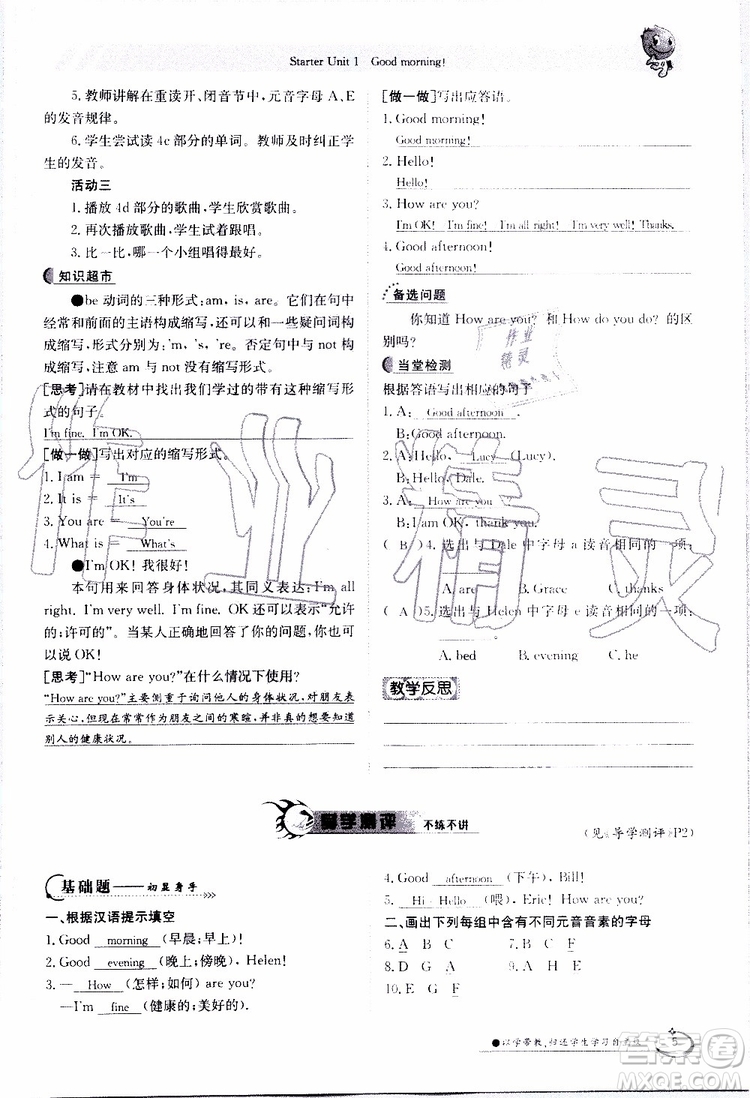 Starter Unit 1 Good morning!
5. 教师讲解在重读开、闭音节中,元音字母 A、E
的发音规律。
6. 学生尝试读 4c 部分的单词。教师及时纠正学
生的发音。
活动三
1. 播放 4d 部分的歌曲,学生欣赏歌曲。
2. 再次播放歌曲,学生尝试着跟唱。
3. 比一比,哪一个小组唱得最好。
知识超市
●be 动词的三种形式:am, is, are。它们在句中
经常和前面的主语构成缩写,还可以和一些疑问词构
成缩写,形式分别为:'m, 's, 're。否定句中与 not 构成
缩写,注意 am 与 not 没有缩写形式。
[思考]请在教材中找出我们学过的带有这种缩写形
式的句子。
I'm fine. I'm OK.
[做一做]写出对应的缩写形式。
1. I am = I'm
2. It is = It's
3. You are = You're
4. What is = What's
●I'm OK! 我很好!
本句用来回答身体状况,其同义表达:I'm all
right. I'm very well. I'm fine. OK 还可以表示“允许
的;许可的”。当某人正确地回答了你的问题,你也可
以说 OK!
[思考]“How are you?”在什么情况下使用?
“How are you?”主要侧重于询问他人的身体状况,对朋友表
示关心,但现在常常作为朋友之间的寒暄,并非真的想知道
别人的健康状况。
[做一做]写出应答语。
1. Good morning!
Good morning!
2. Hello!
Hello!
3. How are you?
I'm OK! I'm fine! I'm all right! I'm very well! Thanks.
4. Good afternoon!
Good afternoon!
备选问题
你知道 How are you? 和 How do you do? 的区
别吗?
当堂检测
根据答语写出相应的句子
1. A: Good afternoon .
B: Good afternoon.
2. A: Hello, Lucy (Lucy).
B: Hello, Dale.
3. A: How are you ?
B: I am OK, thank you.
( B )4. 选出与 Dale 中字母 a 读音相同的一项:
A. are B. Grace C. thanks
( A )5. 选出与 Helen 中字母 e 读音相同的一项:
A. bed B. evening C. he
教学反思
导学测评 不练不讲
(见《导学测评》P2)
基础题——初显身手
一、根据汉语提示填空
1. Good morning (早晨;早上)!
2. Good evening (晚上;傍晚), Helen!
3. — How (怎样;如何) are you?
—I'm fine (健康的;美好的).
4. Good afternoon (下午), Bill!
5. Hi/Hello (喂), Eric! How are you?
二、画出下列每组中含有不同元音音素的字母
6. A B C 7. B C F
8. D G A 9. A H F
10. E G F
●以学带教,归还学生学习自主权
5
作业精灵
作业
精灵
答案圈
MXQE.COM